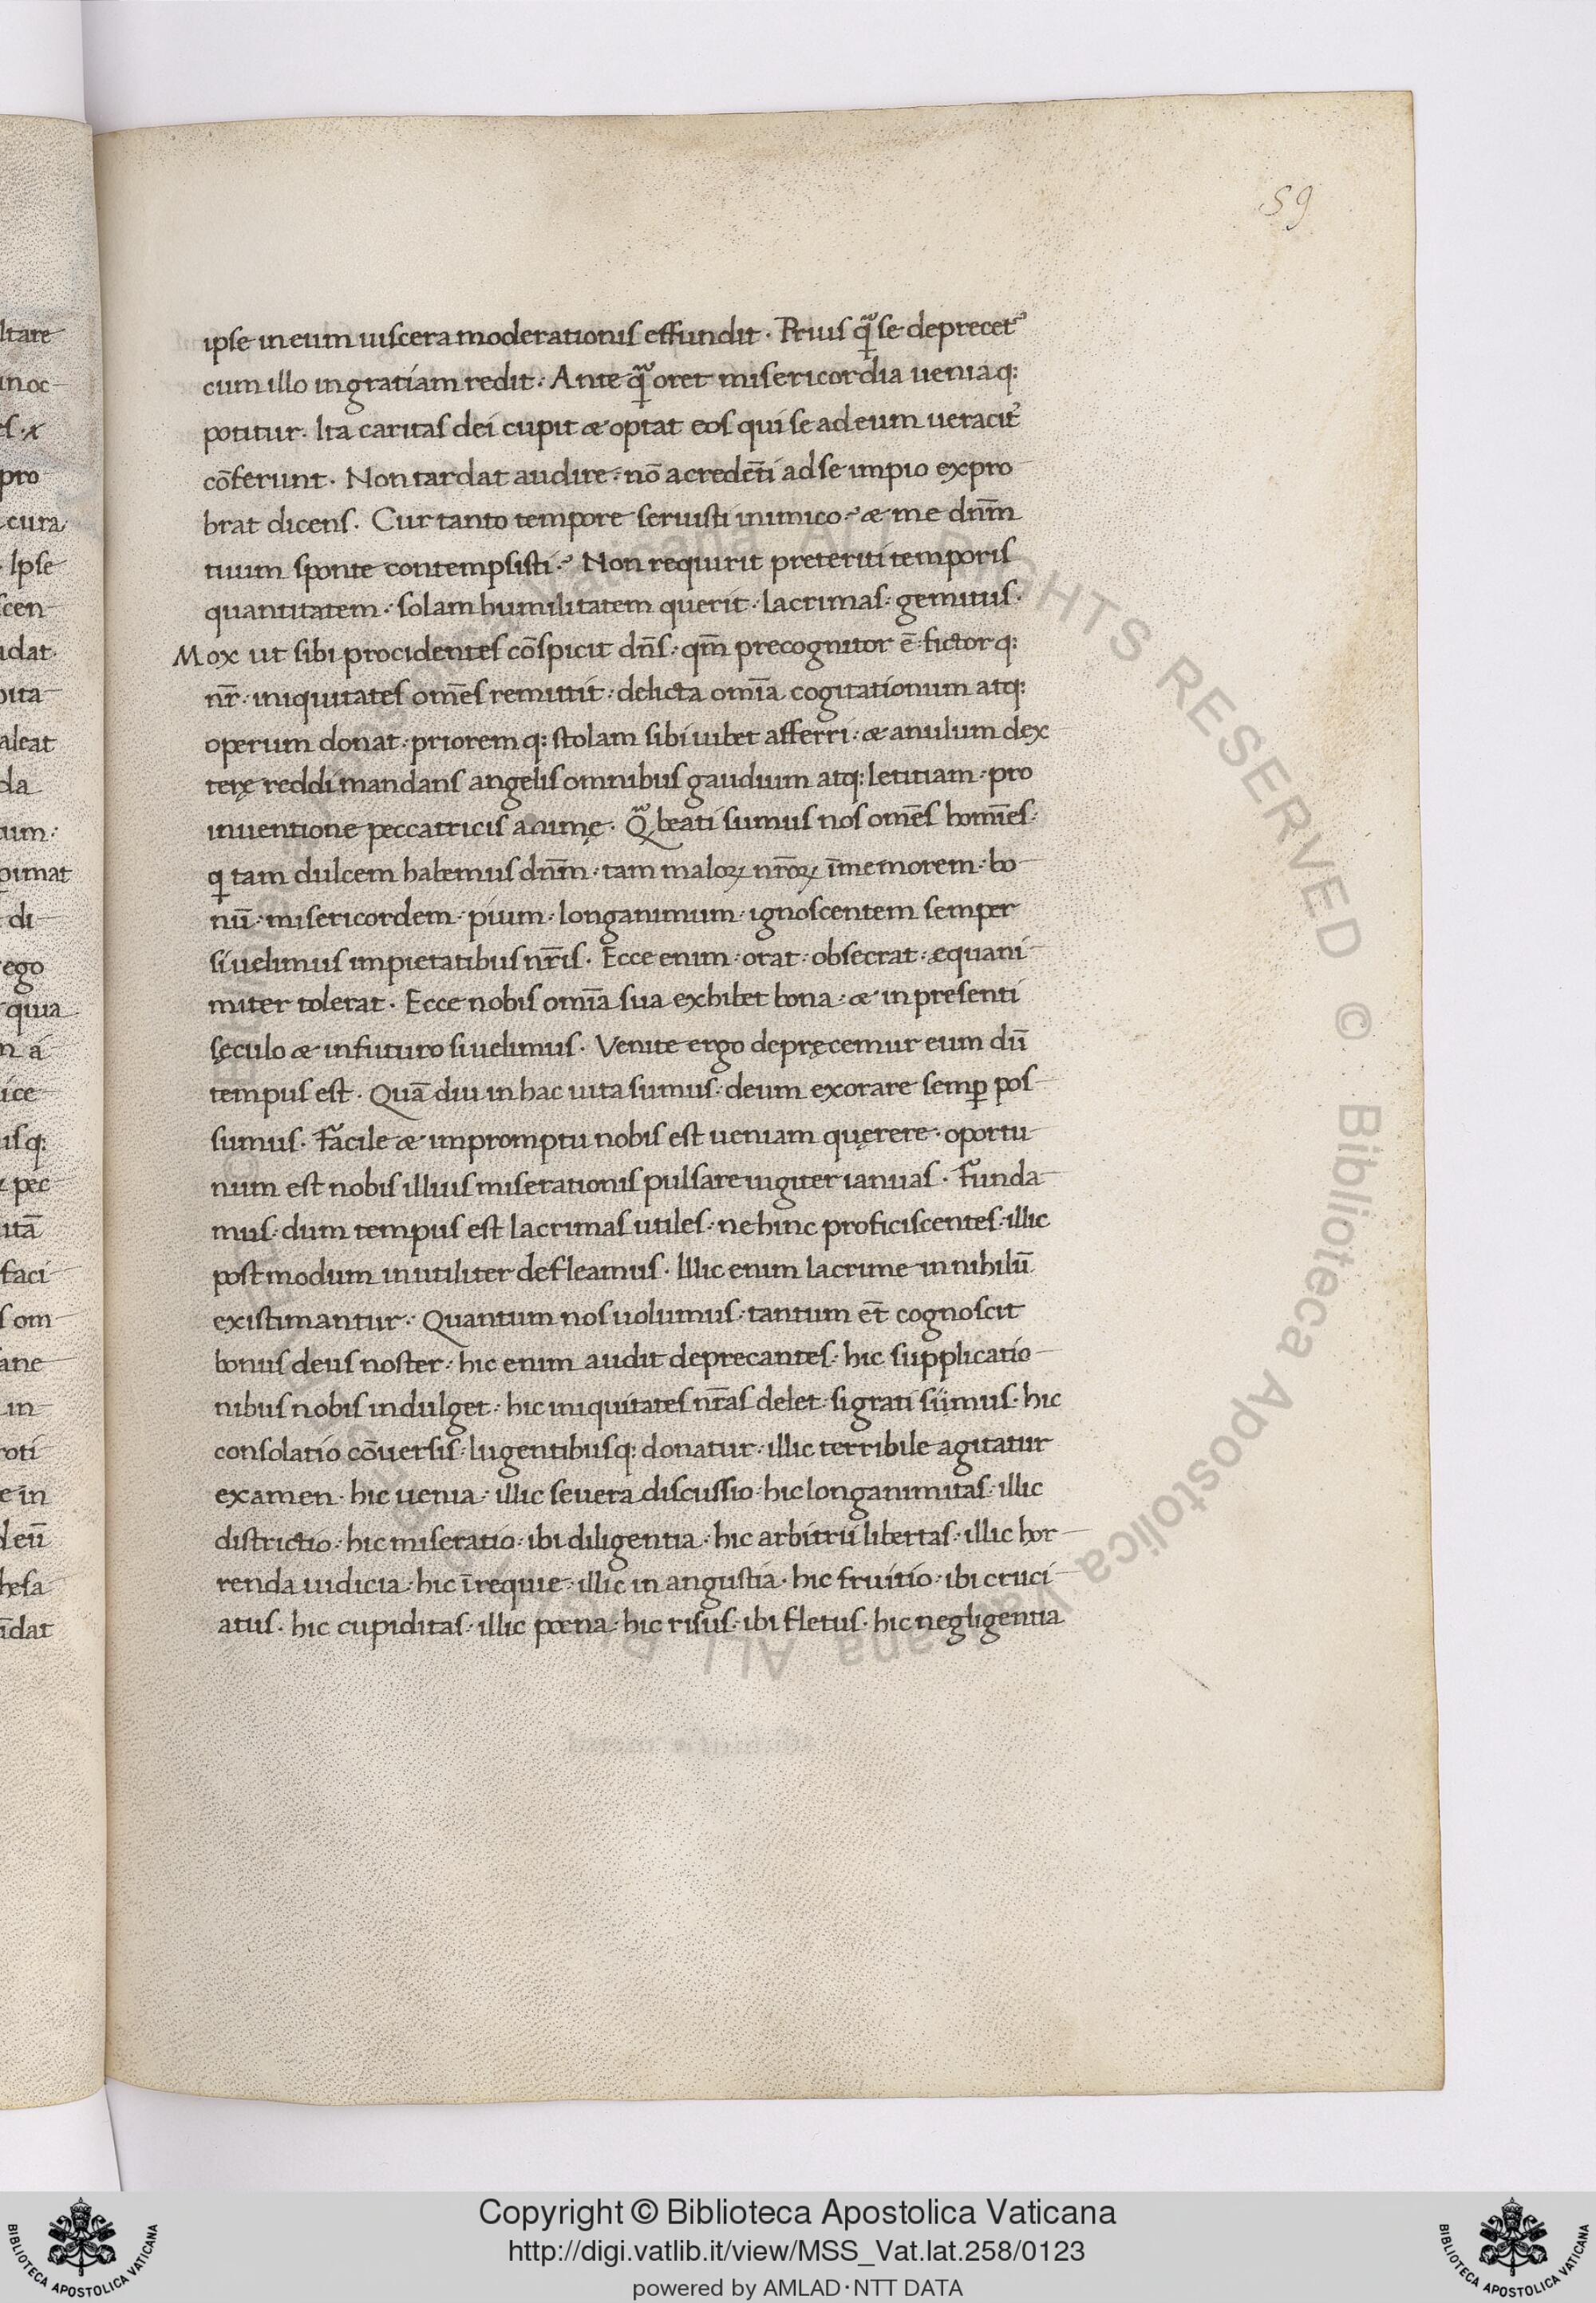 59
ipse in eum uiscera moderationis effundit · Prius qᷓ se deprecet᷒
cum illo in gratiam redit · Ante qᷓ oret misericordia ueniaq:
potitur · Ita caritas dei cupit æ optat eos qui se ad eum ueracit᷒
cōferunt · Non tardat audire · nō acredēti ad se impio expro
brat dicens · Cur tanto tempore seruisti inimico · æ me dnm̄
tuum sponte contempsisti · Non requirit preteriti temporis
quantitatem · solam humilitatem querit · lacrimas · gemitus ·
Mox ut sibi procidentes cōspicit dn̄s · qm̄ precognitor ē fictorq:
nr̄ · iniquitates om̄es remittit · delicta om̄ia cogitationum atq:
operum donat · prioremq: stolam sibi iubet afferri · æ anulum dex
terę reddi mandans angelis omnibus gaudium atq: letitiam · pro
inuentione peccatricis animę · Qᷓ beati sumus nos om̄es hom̄es ·
qi tam dulcem habemus dnm̄ · tam maloꝝ nr̄oꝝ īmemorem · bo
nū · misericordem · pium · longanimum · ignoscentem semper
si uelimus impietatibus nr̄is · Ecce enim · orat · obsecrat · equani
miter tolerat · Ecce nobis om̄ia sua exhibet bona · æ in presenti
sęculo æ in futuro si uelimus · Venite ergo depręcemur eum dū
tempus est · Quā diu in hac uita sumus · deum exorare semꝑ pos
sumus · Facile æ impromptu nobis est ueniam quęrere · oportu
num est nobis illius miserationis pulsare iugiter ianuas · Funda
mus · dum tempus est lacrimas utiles · ne hinc proficiscentes · illic
postmodum inutiliter defleamus · Illic enim lacrime in nihilū
existimantur · Quantum nos uolumus · tantum et̄ cognoscit
bonus deus noster · hic enim audit deprecantes · hic supplicatio
nibus nobis indulget · hic iniquitates nr̄as delet · si grati simus · hic
consolatio cōuersis · lugentibusq: donatur · illic terribile agitatur
examen · hic uenia · illic seuera discussio · hic longanimitas · illic
districtio · hic miseratio · ibi diligentia · hic arbitrii libertas · illic hor
renda iudicia · hic ī requie · illic in angustia · hic fruitio · ibi cruci
atus · hic cupiditas · illic pœna · hic risus · ibi fletus · hic negligentia
Copyright © Biblioteca Apostolica Vaticana
http://digi.vatlib.it/view/MSS_Vat.lat.258/0123
powered by AMLAD·NTT DATA